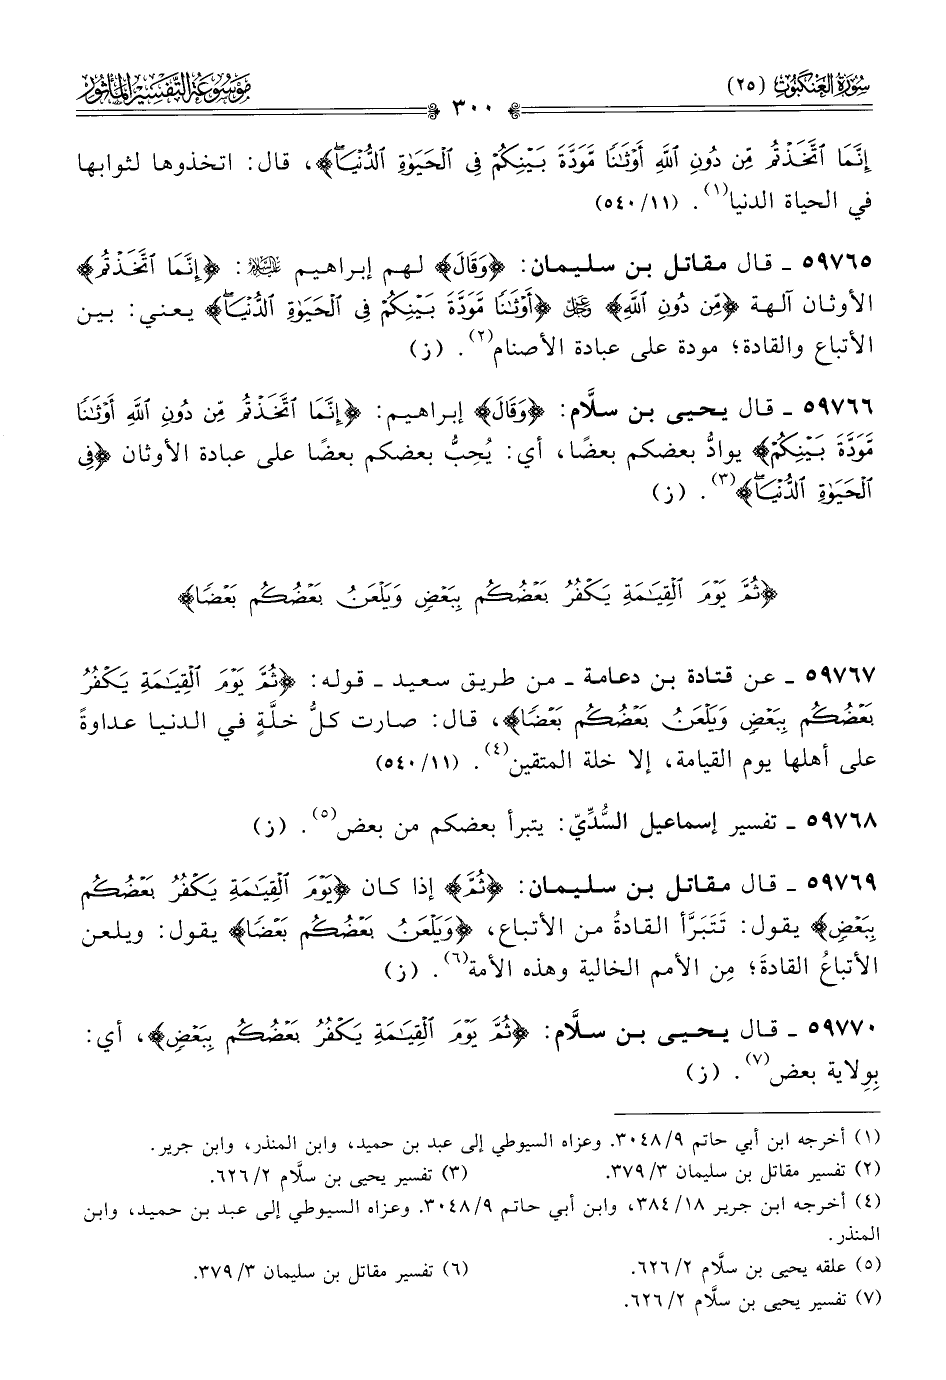 سُورَةُ العَنكَبُوتِ (٢٥)
٣٠٠
مَوْسُوعَةُ التَّفْسِيرِ المَأْثُورِ
إِنَّمَا ٱتَّخَذْتُم مِّن دُونِ ٱللَّهِ أَوْثَـٰنًا مَّوَدَّةَ بَيْنِكُمْ فِى ٱلْحَيَوٰةِ ٱلدُّنْيَاۖ﴾، قال: اتخذوها لثوابها
في الحياة الدنيا(١). (٥٤٠/١١)
٥٩٧٦٥ ـ قال مقاتل بن سليمان: ﴿وَقَالَ﴾ لهم إبراهيم عليه السلام: ﴿إِنَّمَا ٱتَّخَذْتُم﴾
الأوثان آلهة ﴿مِّن دُونِ ٱللَّهِ﴾ عز وجل ﴿أَوْثَـٰنًا مَّوَدَّةَ بَيْنِكُمْ فِى ٱلْحَيَوٰةِ ٱلدُّنْيَاۖ﴾ يعني: بين
الأتباع والقادة؛ مودة على عبادة الأصنام(٢). (ز)
٥٩٧٦٦ ـ قال يحيى بن سلَّام: ﴿وَقَالَ﴾ إبراهيم: ﴿إِنَّمَا ٱتَّخَذْتُم مِّن دُونِ ٱللَّهِ أَوْثَـٰنًا
مَّوَدَّةَ بَيْنِكُمْ﴾ يوادُّ بعضكم بعضًا، أي: يُحِبُّ بعضكم بعضًا على عبادة الأوثان ﴿فِى
ٱلْحَيَوٰةِ ٱلدُّنْيَاۖ﴾(٣). (ز)
﴿ثُمَّ يَوْمَ ٱلْقِيَـٰمَةِ يَكْفُرُ بَعْضُكُم بِبَعْضٍ وَيَلْعَنُ بَعْضُكُم بَعْضًا﴾
٥٩٧٦٧ ـ عن قتادة بن دعامة ـ من طريق سعيد ـ قوله: ﴿ثُمَّ يَوْمَ ٱلْقِيَـٰمَةِ يَكْفُرُ
بَعْضُكُم بِبَعْضٍ وَيَلْعَنُ بَعْضُكُم بَعْضًا﴾، قال: صارت كلُّ خلَّةٍ في الدنيا عداوةً
على أهلها يوم القيامة، إلا خلة المتقين(٤). (٥٤٠/١١)
٥٩٧٦٨ ـ تفسير إسماعيل السُّدِّيّ: يتبرأ بعضكم من بعض(٥). (ز)
٥٩٧٦٩ ـ قال مقاتل بن سليمان: ﴿ثُمَّ﴾ إذا كان ﴿يَوْمَ ٱلْقِيَـٰمَةِ يَكْفُرُ بَعْضُكُم
بِبَعْضٍ﴾ يقول: تَتَبَرَّأ القادةُ من الأتباع، ﴿وَيَلْعَنُ بَعْضُكُم بَعْضًا﴾ يقول: ويلعن
الأتباعُ القادةَ؛ مِن الأمم الخالية وهذه الأمة(٦). (ز)
٥٩٧٧٠ ـ قال يحيى بن سلَّام: ﴿ثُمَّ يَوْمَ ٱلْقِيَـٰمَةِ يَكْفُرُ بَعْضُكُم بِبَعْضٍ﴾، أي:
بِوِلاية بعض(٧). (ز)
(١) أخرجه ابن أبي حاتم ٣٠٤٨/٩. وعزاه السيوطي إلى عبد بن حميد، وابن المنذر، وابن جرير.
(٢) تفسير مقاتل بن سليمان ٣٧٩/٣. (٣) تفسير يحيى بن سلَّام ٦٢٦/٢.
(٤) أخرجه ابن جرير ٣٨٤/١٨، وابن أبي حاتم ٣٠٤٨/٩. وعزاه السيوطي إلى عبد بن حميد، وابن
المنذر.
(٥) علقه يحيى بن سلَّام ٦٢٦/٢. (٦) تفسير مقاتل بن سليمان ٣٧٩/٣.
(٧) تفسير يحيى بن سلَّام ٦٢٦/٢.